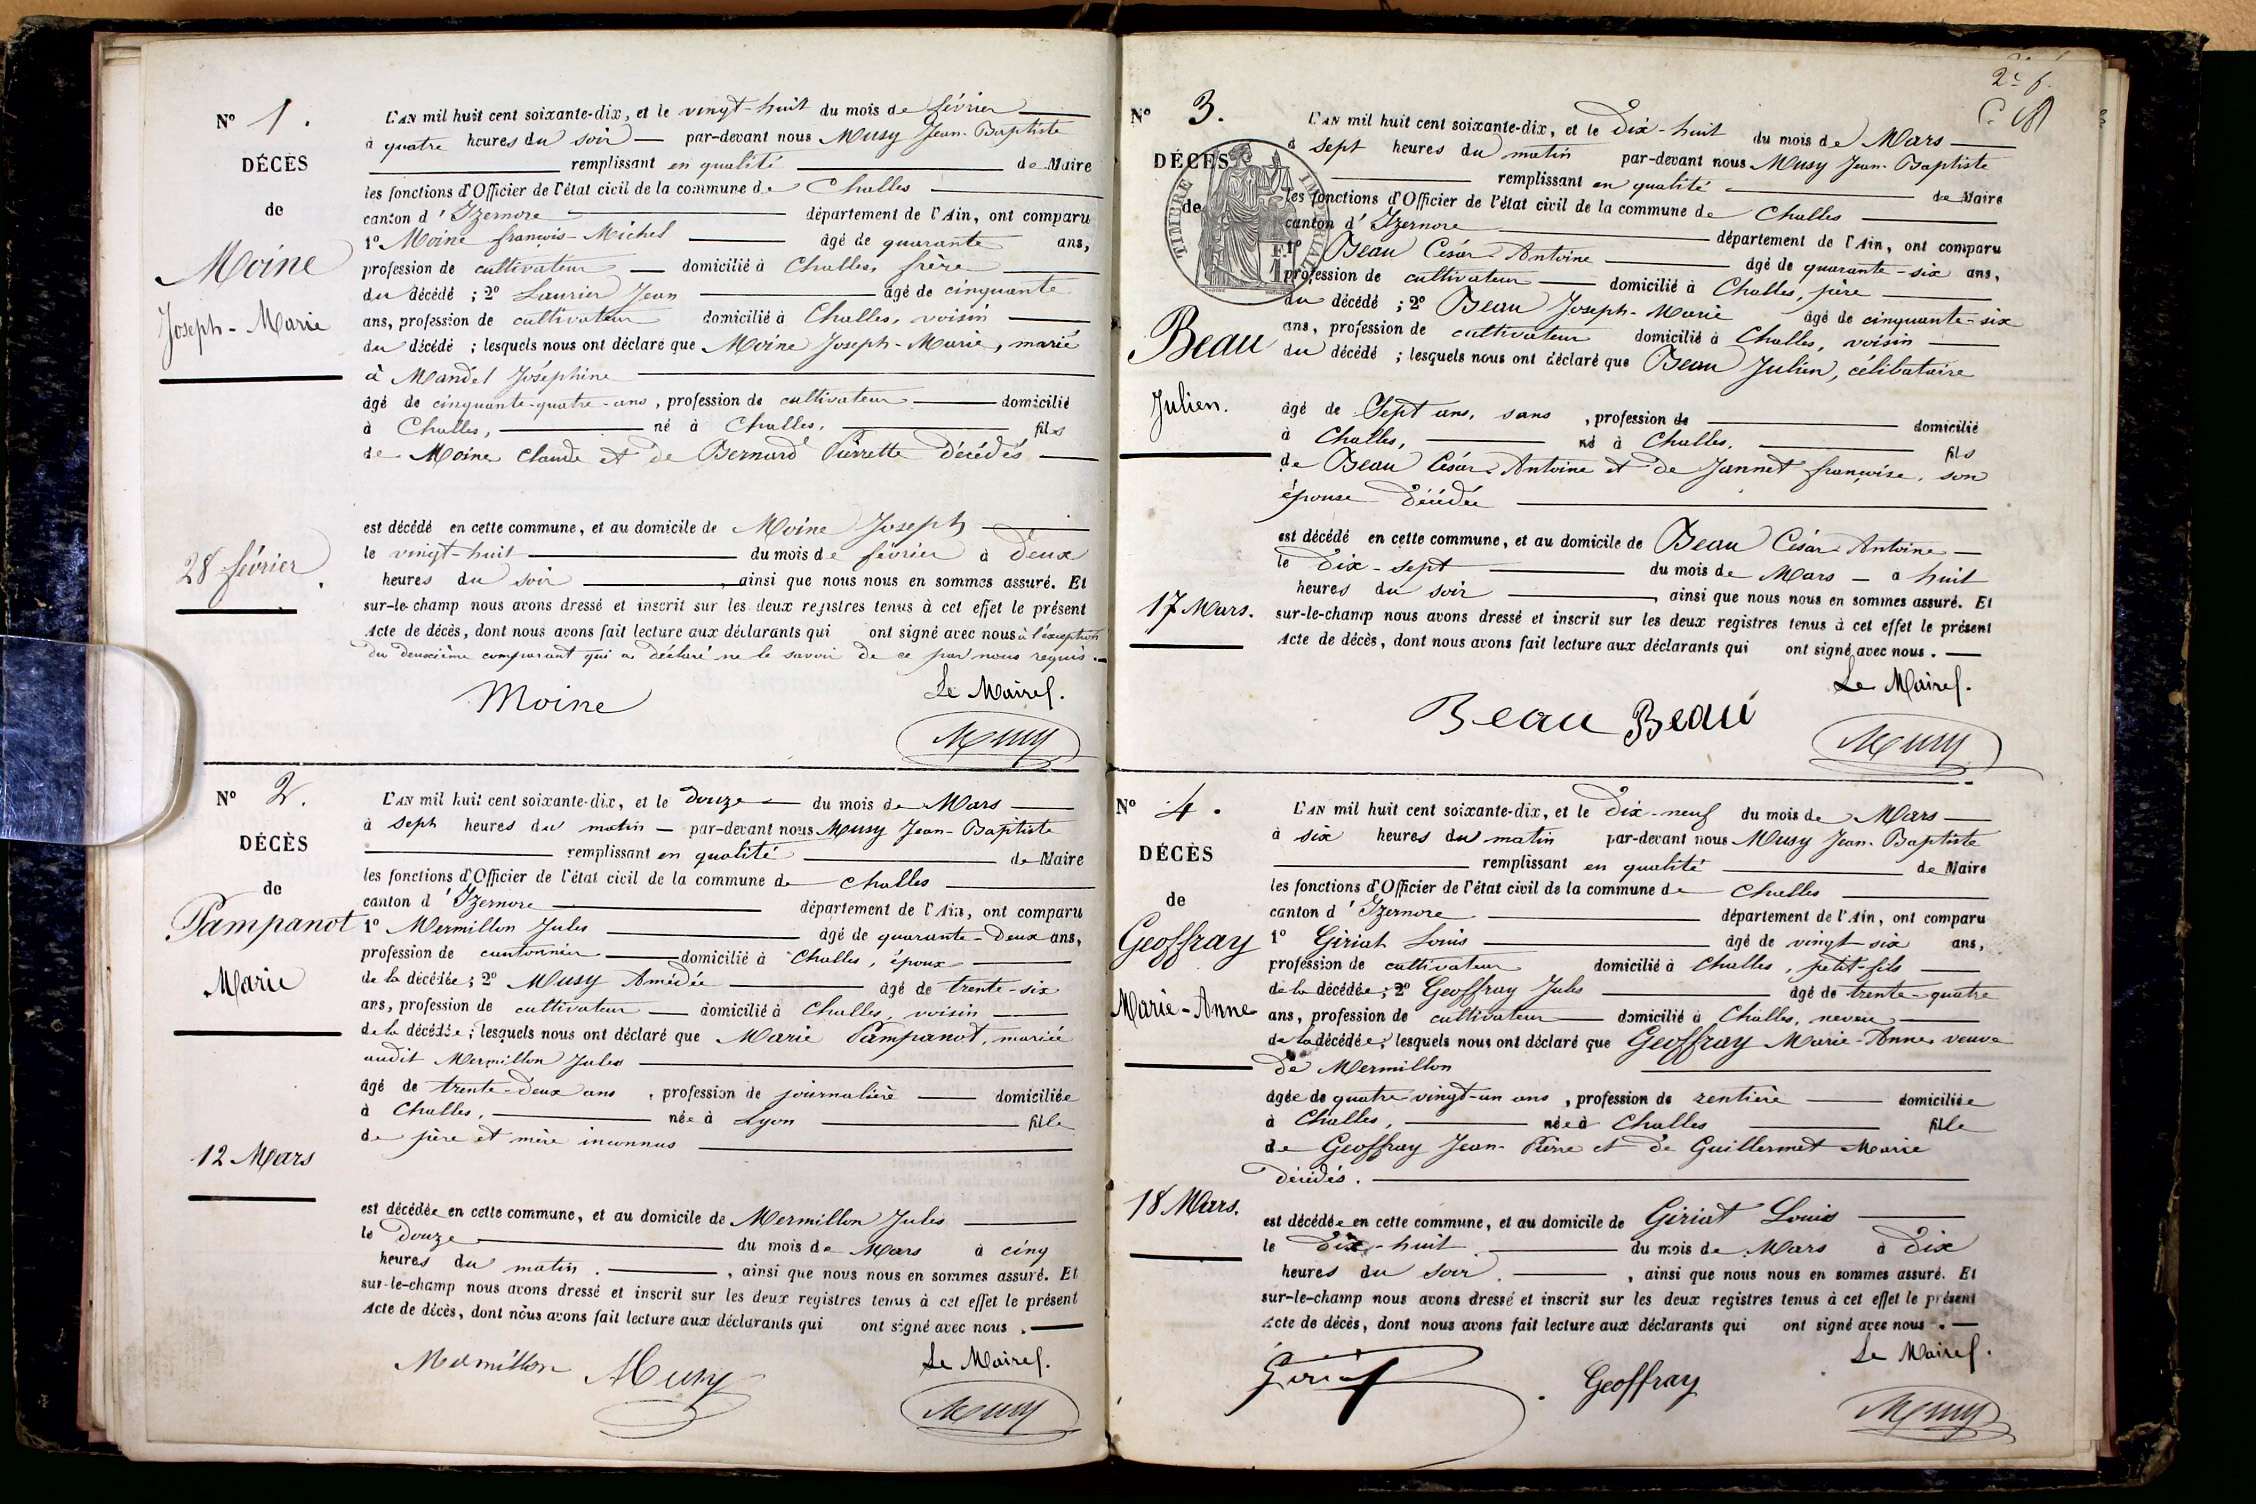 Nº 1.
DÉCÈS
de
Moine
Joseph-Marie
28 février.
L'AN mil huit cent soixante-dix, et le vingt-huit du mois de février
à quatre heures du soir par-devant nous Musy Jean-Baptiste
remplissant en qualité de Maire
les fonctions d'Officier de l'état civil de la commune de Challes
canton d'Izernore département de l'Ain, ont comparu
1º Moine françois-Michel âgé de quarante ans,
profession de cultivateur domicilié à Challes, frère
du décédé ; 2º Laurier Jean âgé de cinquante
ans, profession de cultivateur domicilié à Challes, voisin
du décédé ; lesquels nous ont déclaré que Moine Joseph-Marie, marié
à Mandel Joséphine
âgé de cinquante-quatre-ans, profession de cultivateur domicilié
à Challes, né à Challes, fils
de Moine Claude et de Bernard Pierrette décédés
est décédé en cette commune, et au domicile de Moine Joseph
le vingt-huit du mois de février à deux
heures du soir, ainsi que nous nous en sommes assuré. Et
sur-le-champ nous avons dressé et inscrit sur les deux registres tenus à cet effet le présent
Acte de décès, dont nous avons fait lecture aux déclarants qui ont signé avec nous à l'exception
du deuxième comparant qui a déclaré ne le savoir de ce par nous requis.
Le Maire.
Moine
Musy
Nº 2.
DÉCÈS
de
Pampanot
Marie
12 Mars
L'AN mil huit cent soixante-dix, et le douze du mois de Mars
à sept heures du matin par-devant nous Musy Jean-Baptiste
remplissant en qualité de Maire
les fonctions d'Officier de l'état civil de la commune de Challes
canton d'Izernore département de l'Ain, ont comparu
1º Mermillon Jules âgé de quarante-deux ans,
profession de cantonnier domicilié à Challes, époux
de la décédée ; 2º Musy Amédée âgé de trente-six
ans, profession de cultivateur domicilié à Challes, voisin
de la décédée ; lesquels nous ont déclaré que Marie Pampanot, mariée
audit Mermillon Jules
âgé de trente-deux ans, profession de journalière domiciliée
à Challes, née à Lyon fille
de père et mère inconnus
est décédée en cette commune, et au domicile de Mermillon Jules
le douze du mois de Mars à cinq
heures du matin, ainsi que nous nous en sommes assuré. Et
sur-le-champ nous avons dressé et inscrit sur les deux registres tenus à cet effet le présent
Acte de décès, dont nous avons fait lecture aux déclarants qui ont signé avec nous.
Le Maire.
Mermillon Musy
Musy
2e f.
Nº 3.
DÉCÈS
de
TIMBRE IMPÉRIAL
1F.
Beau
Julien.
17 Mars.
L'AN mil huit cent soixante-dix, et le dix-huit du mois de Mars
à sept heures du matin par-devant nous Musy Jean-Baptiste
remplissant en qualité de Maire
les fonctions d'Officier de l'état civil de la commune de Challes
canton d'Izernore département de l'Ain, ont comparu
1º Beau César Antoine âgé de quarante-six ans,
profession de cultivateur domicilié à Challes, père
du décédé ; 2º Beau Joseph-Marie âgé de cinquante-six
ans, profession de cultivateur domicilié à Challes, voisin
du décédé ; lesquels nous ont déclaré que Beau Julien, célibataire
âgé de Sept ans, sans, profession de domicilié
à Challes, né à Challes, fils
de Beau César Antoine et de Jannet françoise, son
épouse décédée
est décédé en cette commune, et au domicile de Beau César Antoine
le dix-sept du mois de Mars à huit
heures du soir, ainsi que nous nous en sommes assuré. Et
sur-le-champ nous avons dressé et inscrit sur les deux registres tenus à cet effet le présent
Acte de décès, dont nous avons fait lecture aux déclarants qui ont signé avec nous.
Le Maire.
Beau Beau
Musy
Nº 4.
DÉCÈS
de
Geoffray
Marie-Anne
18 Mars.
L'AN mil huit cent soixante-dix, et le dix-neuf du mois de Mars
à six heures du matin par-devant nous Musy Jean-Baptiste
remplissant en qualité de Maire
les fonctions d'Officier de l'état civil de la commune de Challes
canton d'Izernore département de l'Ain, ont comparu
1º Giriat Louis âgé de vingt-six ans,
profession de cultivateur domicilié à Challes, petit-fils
de la décédée ; 2º Geoffray Jules âgé de trente-quatre
ans, profession de cultivateur domicilié à Challes, neveu
de la décédée ; lesquels nous ont déclaré que Geoffray Marie-Anne, veuve
de Mermillon
âgée de quatre-vingt-un ans, profession de rentière domiciliée
à Challes, née à Challes fille
de Geoffray Jean-Pierre et de Guillermet Marie
décédés.
est décédée en cette commune, et au domicile de Giriat Louis
le dix-huit du mois de Mars à dix
heures du soir, ainsi que nous nous en sommes assuré. Et
sur-le-champ nous avons dressé et inscrit sur les deux registres tenus à cet effet le présent
Acte de décès, dont nous avons fait lecture aux déclarants qui ont signé avec nous.
Le Maire.
Giriat Geoffray
Musy